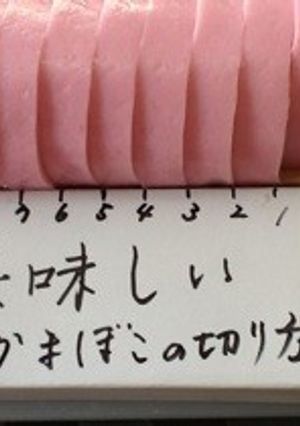 7 6 5 4 3 2 1
味しい
かまぼこの切り方